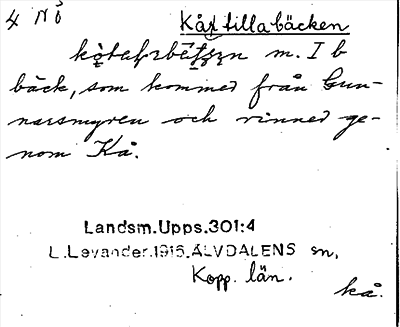 4 NÖ
Kåxtillabäcken
m. I b
bäck, som kommer från Gun-
narsmyren och rinner ge-
nom Kå.
Landsm.Upps.301:4
L.Levander.1916.ÄLVDALENS sn,
Kopp. län.
kå.